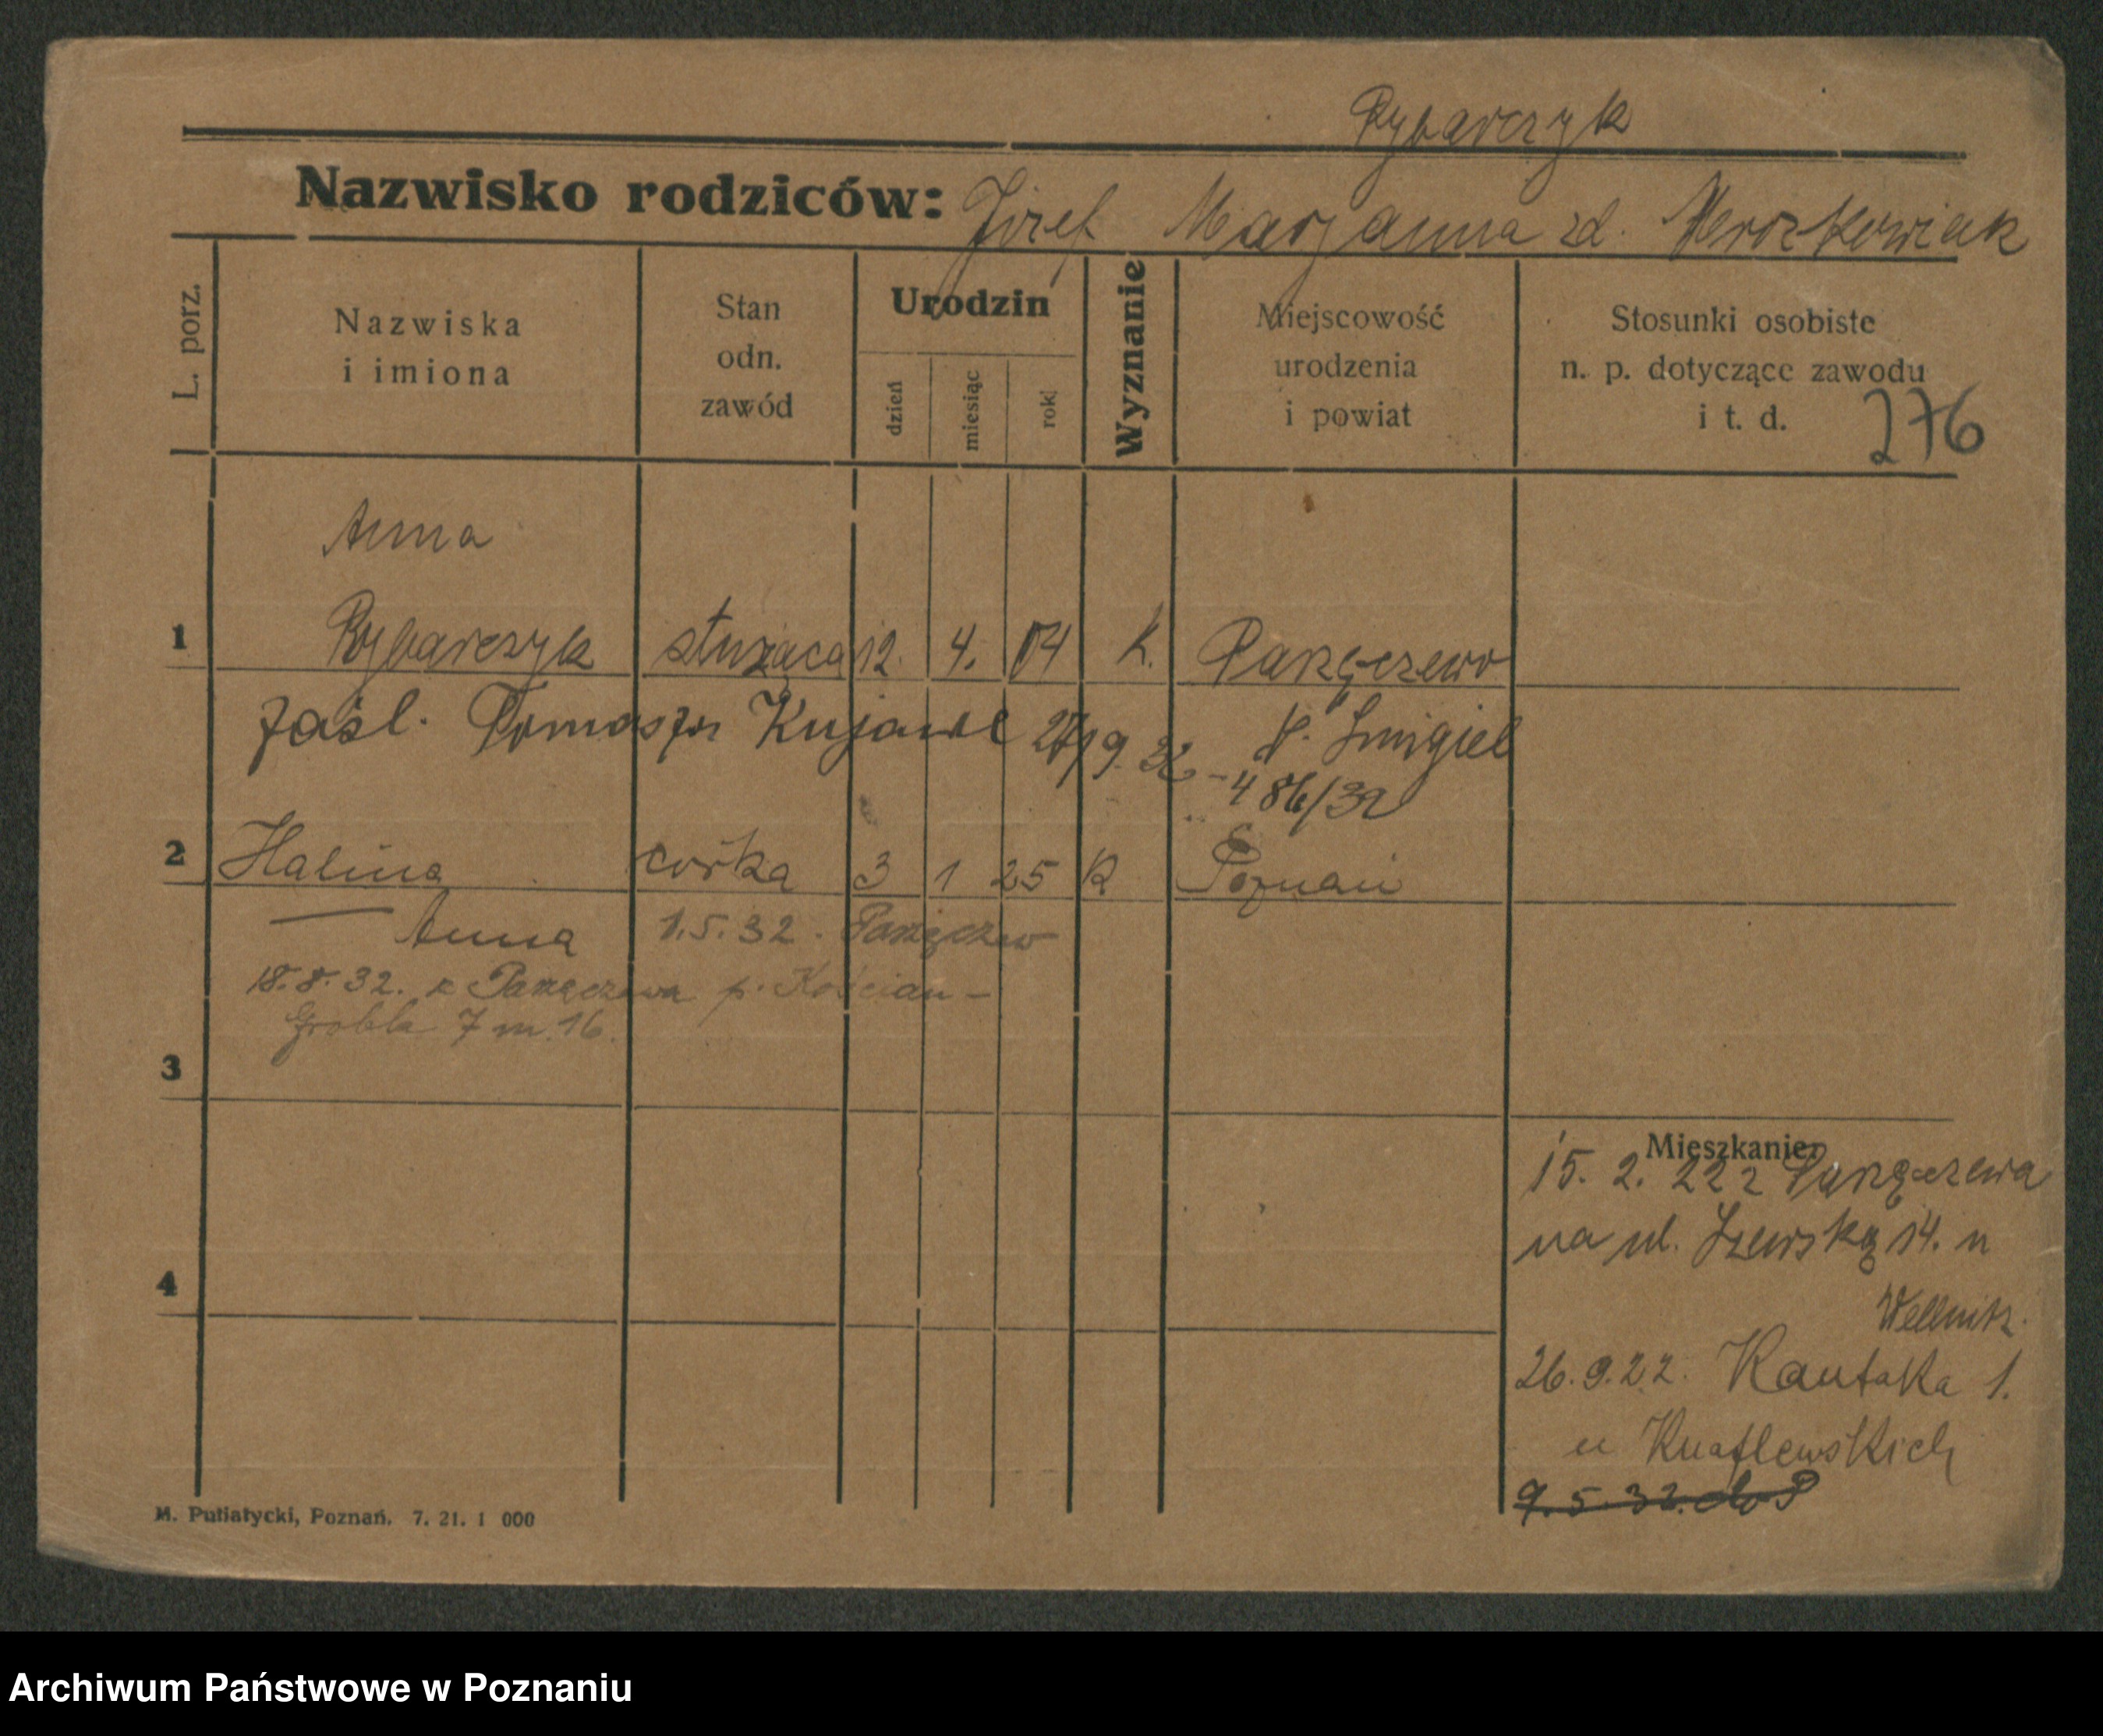 Rybarczyk
Nazwisko rodziców: Józef Marjanna zd.
L. porz.
Nazwiska
i imiona
Stan
odn.
zawód
Urodzin
dzień
miesiąc
rok
Wyznanie
Miejscowość
urodzenia
i powiat
Stosunki osobiste
n. p. dotyczące zawodu
i t. d.
276
Anna
1 Rybarczyk służąca 12. 4. 04 K. Parzęczewo
zaśl. Tomasza Kujawe 27/9. 32 p. Śmigiel
486/32
2 Halina córka 3 1 25 K Poznań
Anna 1.5.32. Parzęczew
18.8.32. z Parzęczewa p. Kościan -
Grobla 7 m. 16.
3
Mieszkanie:
15. 2. 22 z Parzęczewa
na ul. Szewską 14. u
4
Wellnitz.
26.9.22. Kantaka 1.
u Knaflewskich
9.5.32. do P
M. Putiatycki, Poznań. 7. 21. 1 000
Archiwum Państwowe w Poznaniu